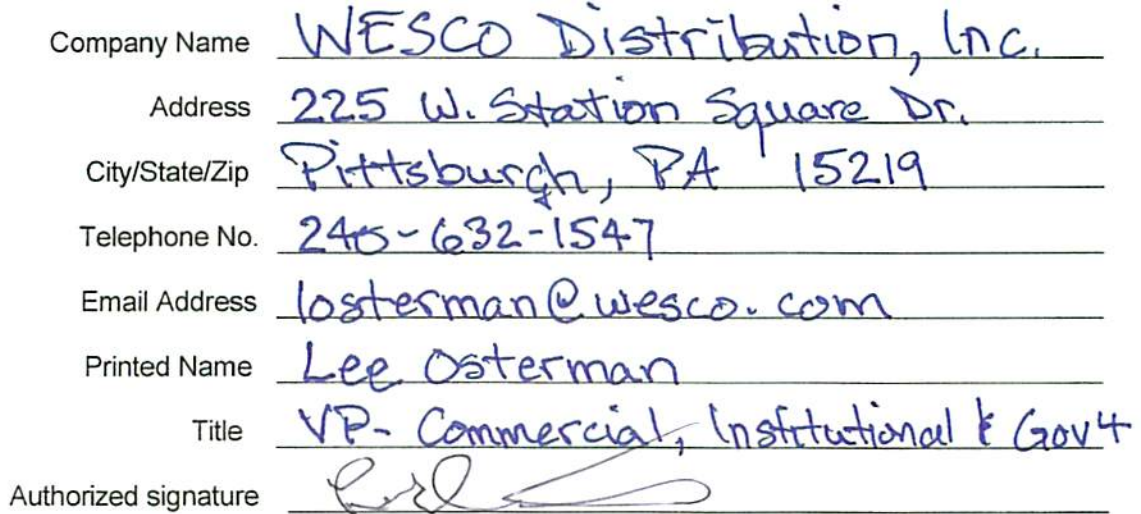 Company Name WESCO Distribution, Inc.
Address 225 W. Station Square Dr.
City/State/Zip Pittsburgh, PA 15219
Telephone No. 240-632-1547
Email Address losterman@wesco.com
Printed Name Lee Osterman
Title VP- Commercial, Institutional & Gov't
Authorized signature